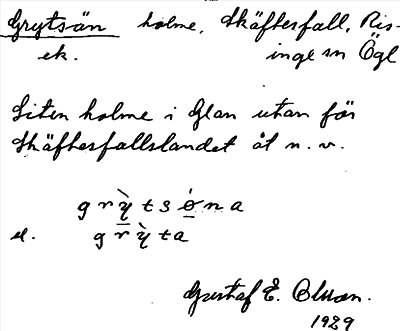 Grytsän holme, Skäftesfall, Ris-
ek. inge sn Ögl
Liten holme i Glan utan för
Skäftesfallslandet åt n. v.
g r ỳ t s ö n a
el. g r ỳ t a
Gustaf E.
1929